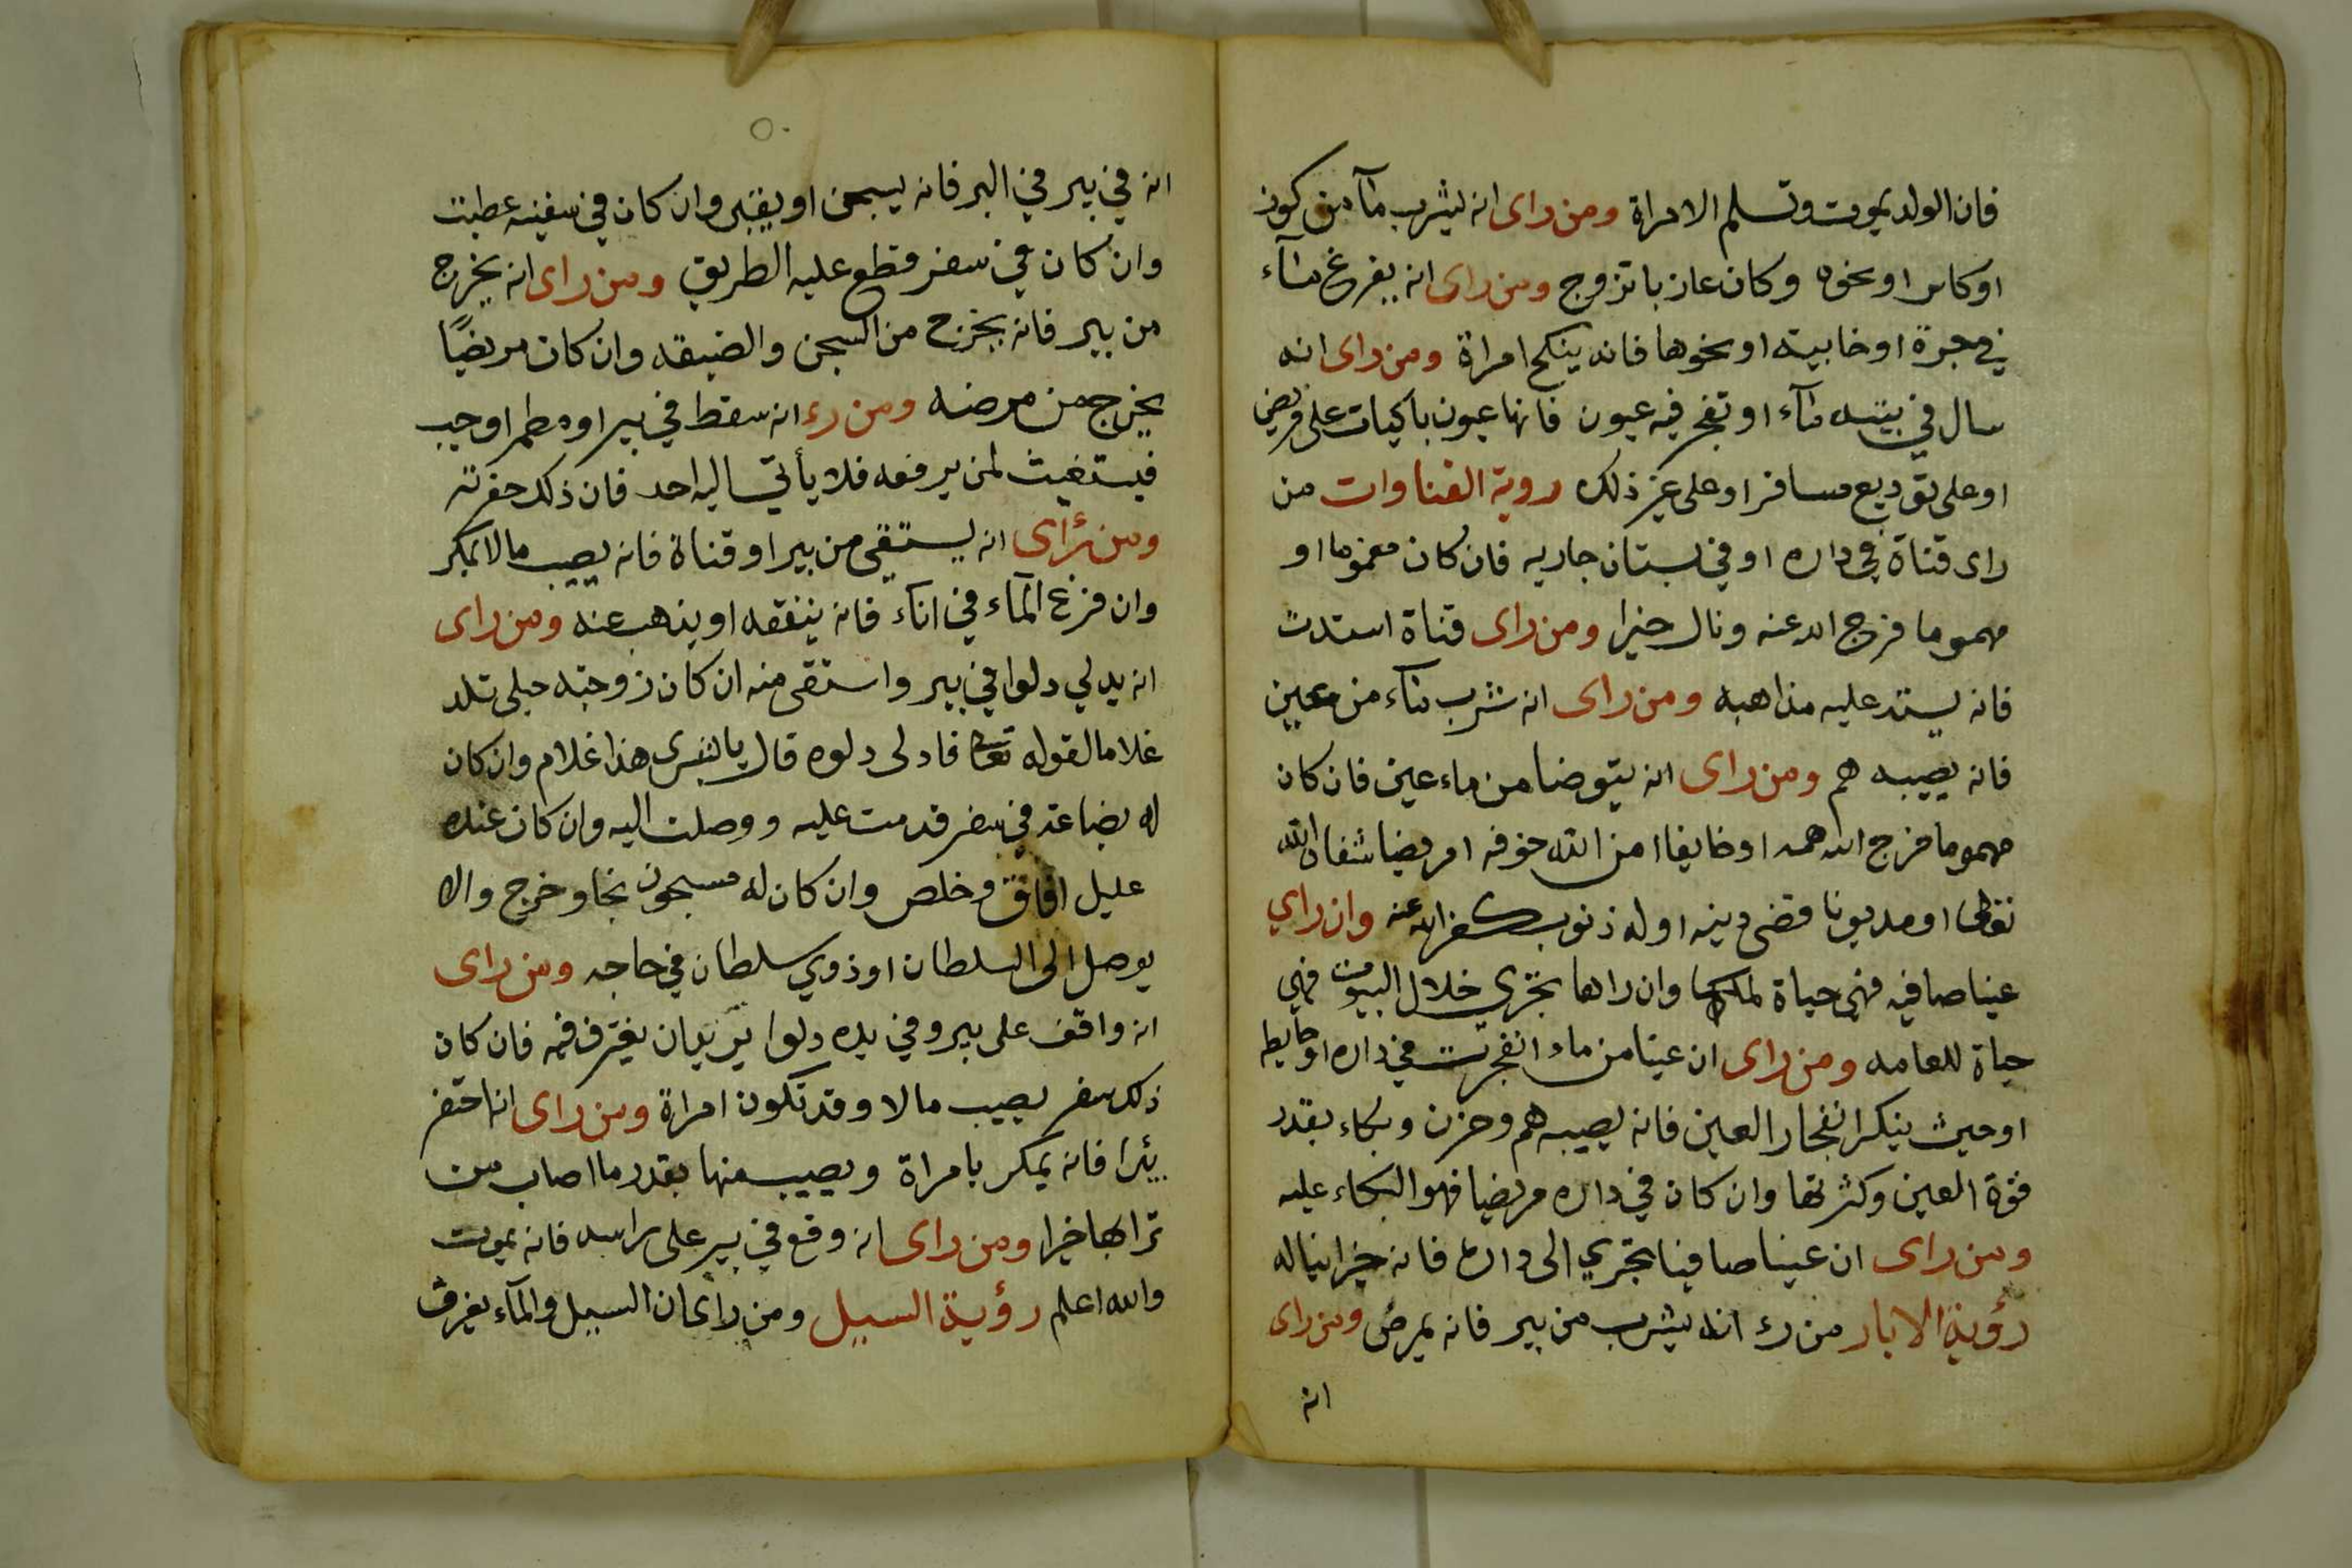 فان الولد يموت وتسلم الامراة ومن راى انه ليشرب مآ من كوز
او كاس او نحوه وكان عازبا تزوج ومن راى انه يفرغ مآء
في جرة او خابية او نحوها فانه ينكح امراة ومن راى انه
سال في بيته مآء او تفجر فيه عيون فانها عيون باكيات على مريض
او على توديع مسافر او على غير ذلك روية القناوات من
راى قناة في داره او في بستان جاريه فان كان مغموما او
مهموما فرج الله عنه ونال خيرا ومن راى قناة استدت
فانه يستد عليه مذاهبه ومن راى انه شرب مآء من معين
فانه يصيبه هم ومن راى انه يتوضا من ماء عين فان كان
مهموما فرج الله همه او خايفا امن الله خوفه او مريضا شفاه الله
تعالى او مديونا قضى دينه او له ذنوب كفر الله عنه وان راي
عينا صافيه فهي حياة لمالكها وان راها تجري خلال البيوت فهي
حياة للعامه ومن راى ان عينا من ماء انفجرت في داره او حايطه
او حيث ينكر انفجار العين فانه يصيبه هم وحزن وبكاء بقدر
قوة العين وكثرتها وان كان في داره مريضا فهو البكاء عليه
ومن راى ان عينا صافينا تجري الى داره فانه خيرا يناله
رؤية الابار من رء انه يشرب من بير فانه يمرض ومن راى
انه
انه في بير في البر فانه يسجن او يقبر وان كان في سفينه عطبت
وان كان في سفر قطع عليه الطريق ومن راى انه يخرج
من بير فانه يخرج من السجن والضيقه وان كان مريضًا
يخرج من مرضه ومن رء انه سقط في بير او مطمر او جب
فيستغيث لمن يرفعه فلا يأتي اليه احد فان ذلك حفرته
ومن رأى انه يستقي من بير او قناة فانه يصيب مالا بمكر
وان فزع المآء في انآء فانه ينفقه او يذهب عنه ومن راى
انه يدلي دلوا في بير واستقى منه ان كان زوجته حبلى تلد
غلاما لقوله تعالى فادلى دلوه قال يا بشرى هذا غلام وان كان
له بضاعة في سفر قدمت عليه ووصلت اليه وان كان عنده
عليل افاق وخلص وان كان له مسجون نجا وخرج والا
يوصل الى السلطان او ذوي سلطان في حاجه ومن راى
انه واقف على بير وفي يده دلوا يريد ان يغترف فيه فان كان
ذلك سفر يصيب مالا وقد تكون امراة ومن راى انه احتفر
بئرا فانه يمكر بامراة ويصيب منها بقدر ما اصاب من
ترابها خيرا ومن راى انه وقع في بير على راسه فانه يموت
والله اعلم رؤية السيل ومن راى ان السيل والمآء يغرق